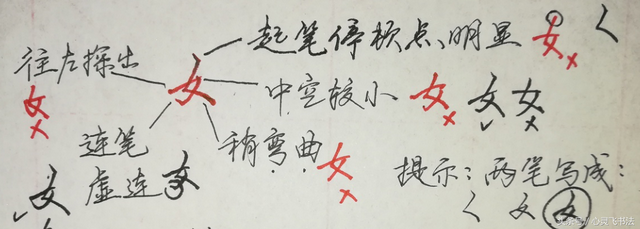 起笔停顿点、明显 女 く
往左探出 女 中空较小 女 女 女
女
连笔 稍弯曲 女
虚连 女
女
提示：两笔写成：
く 女 女
头条@心灵飞书法